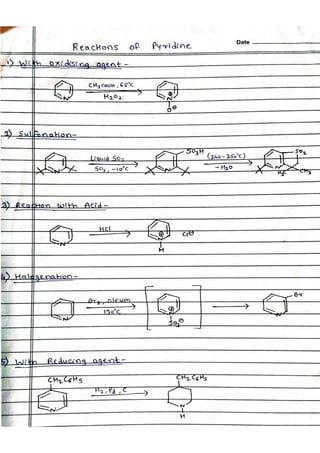 Date
Reactions of Pyridine
1) With oxidising agent -
CH3COOH, 65°C
H2O2
N
N
O
2) Sulfonation -
Liquid SO2
SO3, -10°C
SO3H
(240-250°C)
- H2O
SO2
N
N
N
H3C
CH3
3) Reaction with Acid -
HCl
Cl
N
N
H
4) Halogenation -
Br2, oleum
130°C
Br
N
N
SO3
N
5) With Reducing agent -
CH2C6H5
CH2C6H5
H2, Pd, C
N
N
H